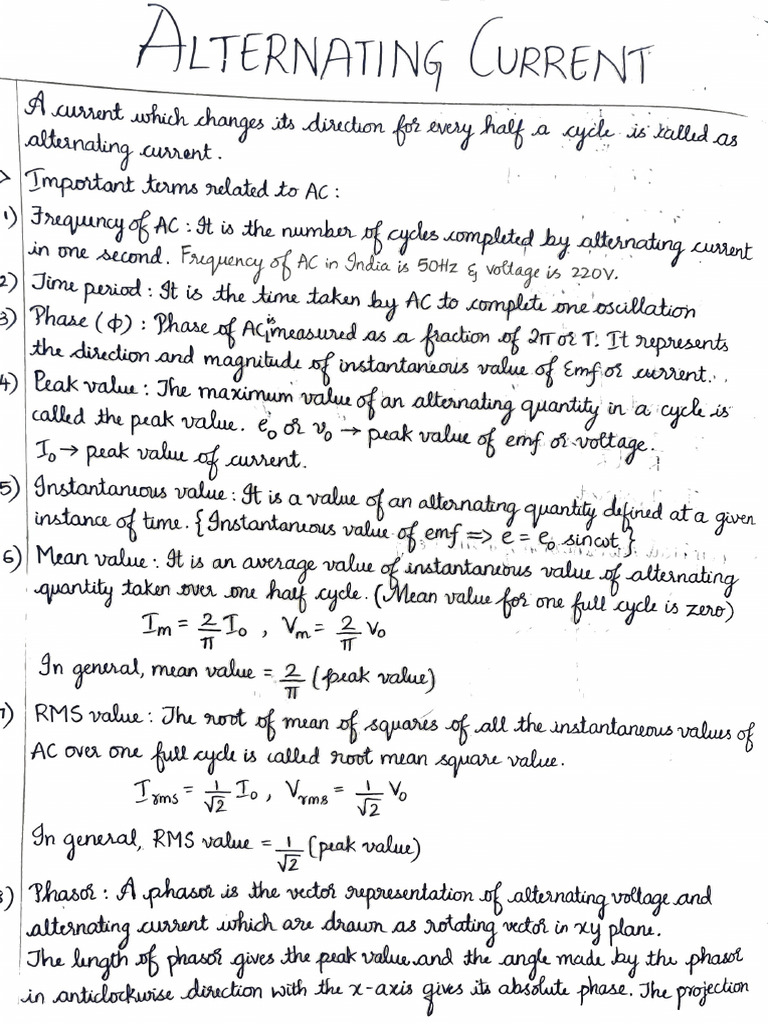 ALTERNATING CURRENT
A current which changes its direction for every half a cycle is called as
alternating current.
> Important terms related to AC :
1) Frequency of AC : It is the number of cycles completed by alternating current
in one second. Frequency of AC in India is 50Hz & voltage is 220V.
2) Time period : It is the time taken by AC to complete one oscillation
3) Phase (Φ) : Phase of AC is measured as a fraction of 2π or T. It represents
the direction and magnitude of instantaneous value of Emf or current.
4) Peak value : The maximum value of an alternating quantity in a cycle is
called the peak value. e₀ or v₀ → peak value of emf or voltage.
I₀ → peak value of current.
5) Instantaneous value : It is a value of an alternating quantity defined at a given
instance of time. {Instantaneous value of emf => e = e₀ sinωt}
6) Mean value : It is an average value of instantaneous value of alternating
quantity taken over one half cycle. (Mean value for one full cycle is zero)
Iₘ = 2/π I₀ , Vₘ = 2/π V₀
In general, mean value = 2/π (peak value)
7) RMS value : The root of mean of squares of all the instantaneous values of
AC over one full cycle is called root mean square value.
Irms = 1/√2 I₀ , Vrms = 1/√2 V₀
In general, RMS value = 1/√2 (peak value)
8) Phasor : A phasor is the vector representation of alternating voltage and
alternating current which are drawn as rotating vector in xy plane.
The length of phasor gives the peak value and the angle made by the phasor
in anticlockwise direction with the x-axis gives its absolute phase. The projection